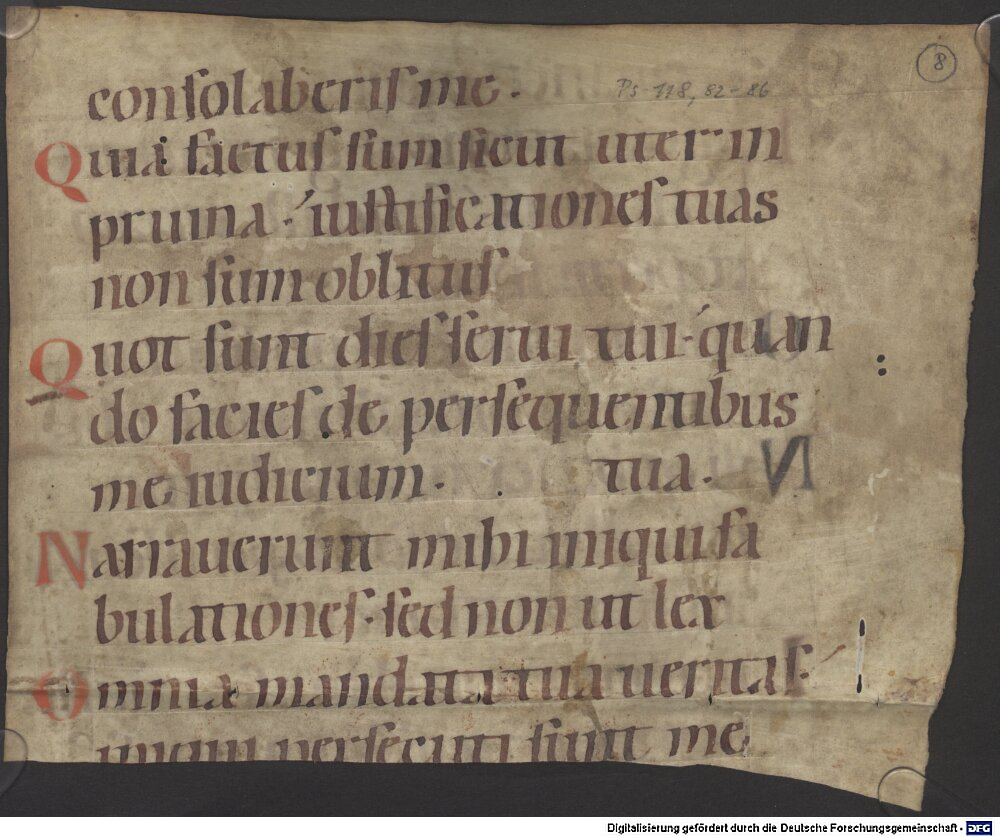 8
Ps 118, 82-86
conſolaberiſ me.
Quia factuſ ſum ſicut uter in
pruina : iuſtificationeſ tuas
non ſum oblituſ
Quot ſunt dieſ ſerui tui : quan
do facieſ de perſequentibus
me iudicium. tua. VI
Narrauerunt mihi iniqui fa
bulationeſ . ſed non ut lex
Omnia mandata tua ueritaſ :
iniqui perſecuti ſunt me
Digitalisierung gefördert durch die Deutsche Forschungsgemeinschaft - DFG